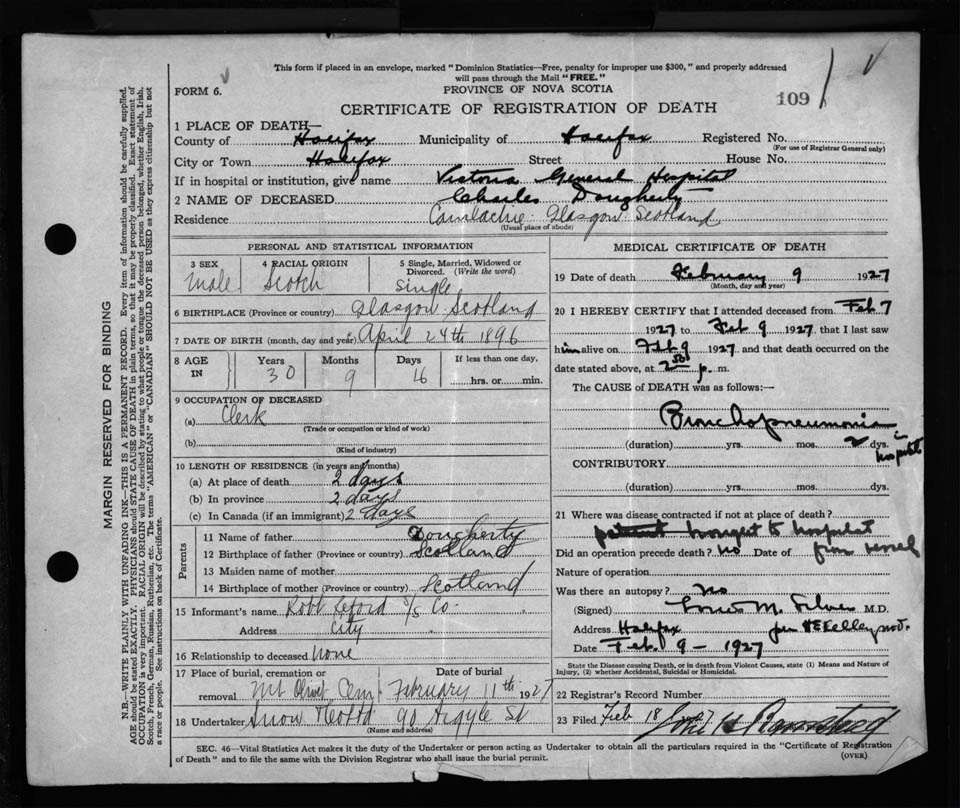 This form if placed in an envelope, marked "Dominion Statistics—Free, penalty for improper use $300," and properly addressed
will pass through the Mail "FREE."
FORM 6. PROVINCE OF NOVA SCOTIA
CERTIFICATE OF REGISTRATION OF DEATH 109
1 PLACE OF DEATH—
County of Halifax Municipality of Halifax Registered No.
(For use of Registrar General only)
City or Town Halifax Street House No.
If in hospital or institution, give name Victoria General Hospital
2 NAME OF DECEASED Charles Dougherty
Residence Camlachie Glasgow Scotland
(Usual place of abode)
PERSONAL AND STATISTICAL INFORMATION
3 SEX 4 RACIAL ORIGIN 5 Single, Married, Widowed or
Divorced. (Write the word)
Male Scotch Single
6 BIRTHPLACE (Province or country) Glasgow Scotland
7 DATE OF BIRTH (month, day and year) April 24th 1896
8 AGE IN Years Months Days If less than one day,
30 9 16 hrs. or min.
9 OCCUPATION OF DECEASED
(a) Clerk
(Trade or occupation or kind of work)
(b)
(Kind of industry)
10 LENGTH OF RESIDENCE (in years and months)
(a) At place of death 2 days
(b) In province 2 days
(c) In Canada (if an immigrant) 2 days
Parents
11 Name of father Dougherty
12 Birthplace of father (Province or country) Scotland
13 Maiden name of mother
14 Birthplace of mother (Province or country) Scotland
15 Informant's name Robt Reford S/S Co
Address City
16 Relationship to deceased None
17 Place of burial, cremation or Date of burial
removal Mt Olivet Cem February 11th 1927
18 Undertaker Snow 90 Argyle St
(Name and address)
MEDICAL CERTIFICATE OF DEATH
19 Date of death February 9 1927
(Month, day and year)
20 I HEREBY CERTIFY that I attended deceased from Feb 7
1927 to Feb 9 1927 that I last saw
him alive on Feb 9 1927 and that death occurred on the
date stated above, at 2 50 p. m.
The CAUSE of DEATH was as follows:—
Bronchopneumonia
(duration) yrs. mos. 2 dys. in hospital
CONTRIBUTORY
(duration) yrs. mos. dys.
21 Where was disease contracted if not at place of death?
patient brought to hospital
Did an operation precede death? No Date of from vessel
Nature of operation
Was there an autopsy? No
(Signed) Louis M. Silver M.D.
Address Halifax per H E Kelley M.D.
Date Feb. 9 - 1927
State the Disease causing Death, or in death from Violent Causes, state (1) Means and Nature of
Injury, (2) whether Accidental, Suicidal or Homicidal.
22 Registrar's Record Number
23 Filed Feb 18
SEC. 46—Vital Statistics Act makes it the duty of the Undertaker or person acting as Undertaker to obtain all the particulars required in the "Certificate of Registration
of Death" and to file the same with the Division Registrar who shall issue the burial permit. (OVER)
MARGIN RESERVED FOR BINDING
N.B.—WRITE PLAINLY WITH UNFADING INK—THIS IS A PERMANENT RECORD. Every item of information should be carefully supplied.
AGE should be stated EXACTLY. PHYSICIANS should STATE CAUSE OF DEATH in plain terms, so that it may be properly classified. Exact statement of
OCCUPATION is very important. RACIAL ORIGIN will be described by stating to what people or tongue the deceased person belonged, whether English, Irish,
Scotch, French, German, Russian, Ruthenian, etc. The terms "AMERICAN" or "CANADIAN" SHOULD NOT BE USED as they express citizenship but not
a race or people. See instructions on back of Certificate.